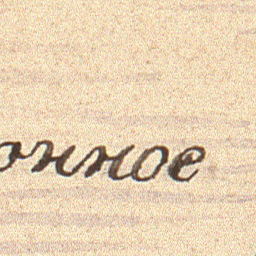 онное